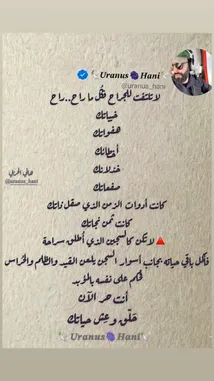 Uranus Hani
@uranus_hani
لا تلتفت للجراح فكُل ما راح..راح
خيباتك
هفواتك
أخطائك
خذلانك
صفعاتك
كانت أدوات الزمن الذي صقل ذاتك
كانت ثمن نجاتك
هاني الحربي
@uranus_hani
لا تكن كالسجين الذي أطلق سراحه
فأكمل باقي حياته بجانب أسوار السجن يلعن القيد والظلم والحراس
حكم على نفسه بالمؤبد
أنت حر الآن
حَلّق وعش حياتك
Uranus Hani